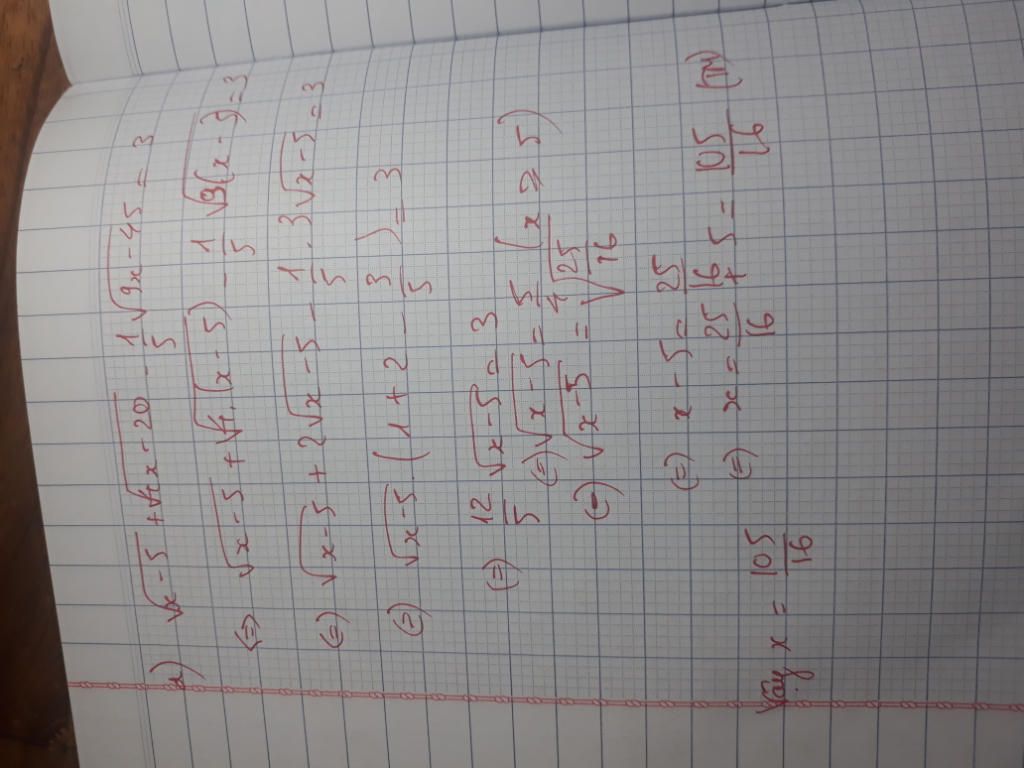 a) √x-5 + √4x-20 - 1/5 √9x-45 = 3
(=) √x-5 + √4.(x-5) - 1/5 √9(x-5) = 3
(=) √x-5 + 2√x-5 - 1/5 . 3√x-5 = 3
(=) √x-5 . (1 + 2 - 3/5) = 3
(=) 12/5 √x-5 = 3
(=) √x-5 = 5/4 (x ≥ 5)
(=) √x-5 = √25/16
(=) x-5 = 25/16
(=) x = 25/16 + 5 = 105/16 (TM)
Vậy x = 105/16